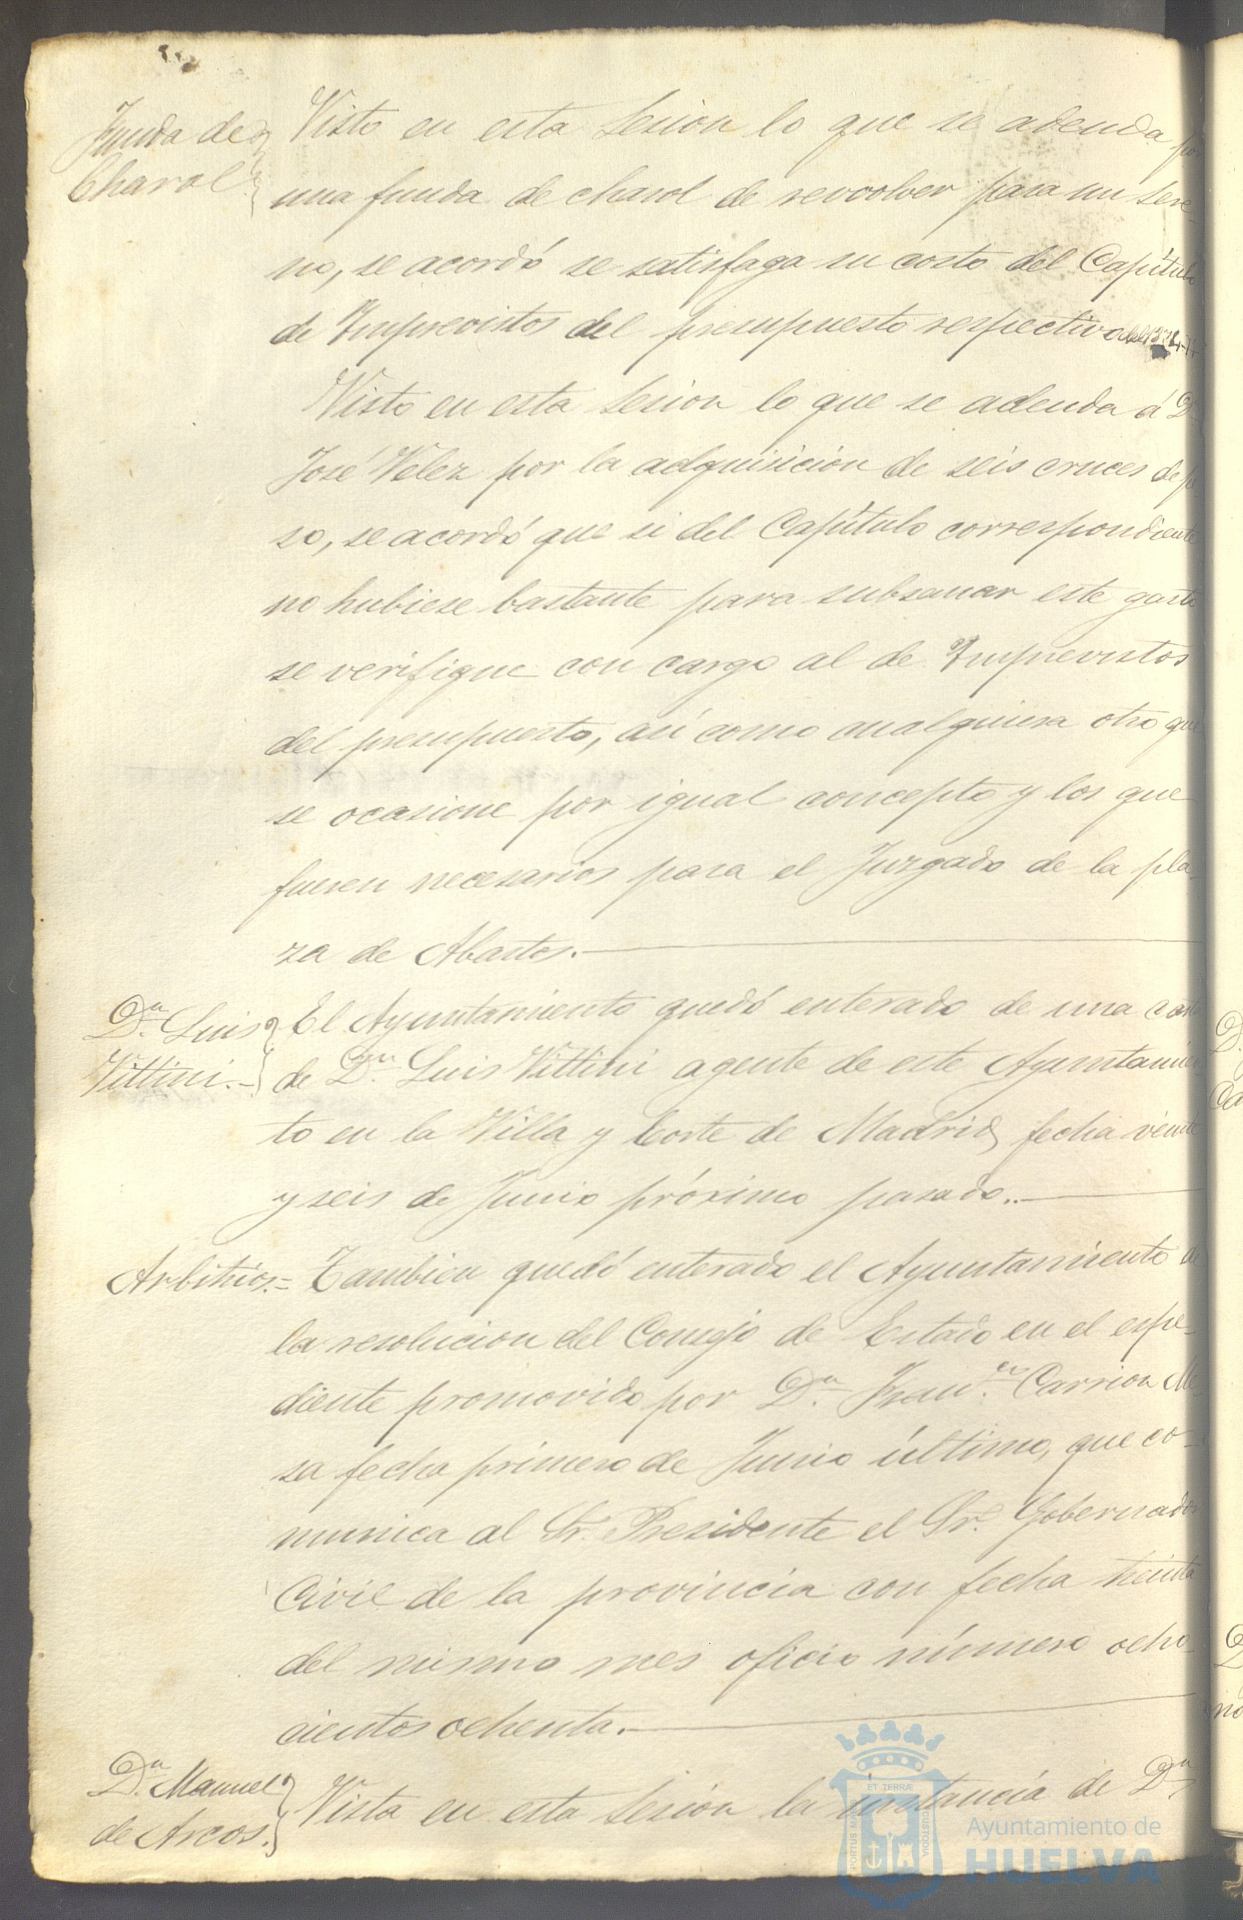 Funda de
Charol
Visto en esta Sesion lo que se adeuda por
una funda de charol de revolver para un Sere-
no, se acordó se satisfaga su costo del Capítulo
de Imprevistos del presupuesto respectivo
Visto en esta Sesion lo que se adeuda á D.
José Velez por la adquisicion de seis cruces de pe
so, se acordó que si del Capítulo correspondiente
no hubiese bastante para subsanar este gasto
se verifique con cargo al de Imprevistos
del presupuesto, así como cualquiera otro que
se ocasione por igual concepto y los que
fuesen necesarios para el Juzgado de la pla-
za de Abastos.
Dn. Luis
Vittini.-
El Ayuntamiento quedó enterado de una carta
de Dn. Luis Vittini agente de este Ayuntamien
to en la Villa y Corte de Madrid, fecha veinte
y seis de Junio próximo pasado..
Arbitrios.=
Tambien quedó enterado el Ayuntamiento de
la resolucion del Consejo de Estado en el espe-
diente promovido por Dn. Franco. Carrion Me
sa fecha primero de Junio último, que co-
munica al Sr. Presidente el Sr. Gobernador
Civil de la provincia con fecha treinta
del mismo mes oficio número ocho-
cientos ochenta.
Dn. Manuel
de Arcos.
Vista en esta Sesion la instancia de Dn
ET TERRÆ
PORTUS MARIS
CUSTODIA
Ayuntamiento de
HUELVA